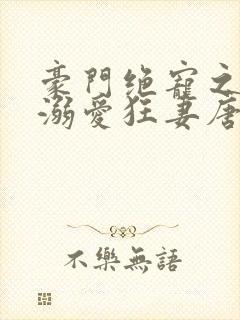 豪門绝寵之
溺愛狂妻唐
不樂無語